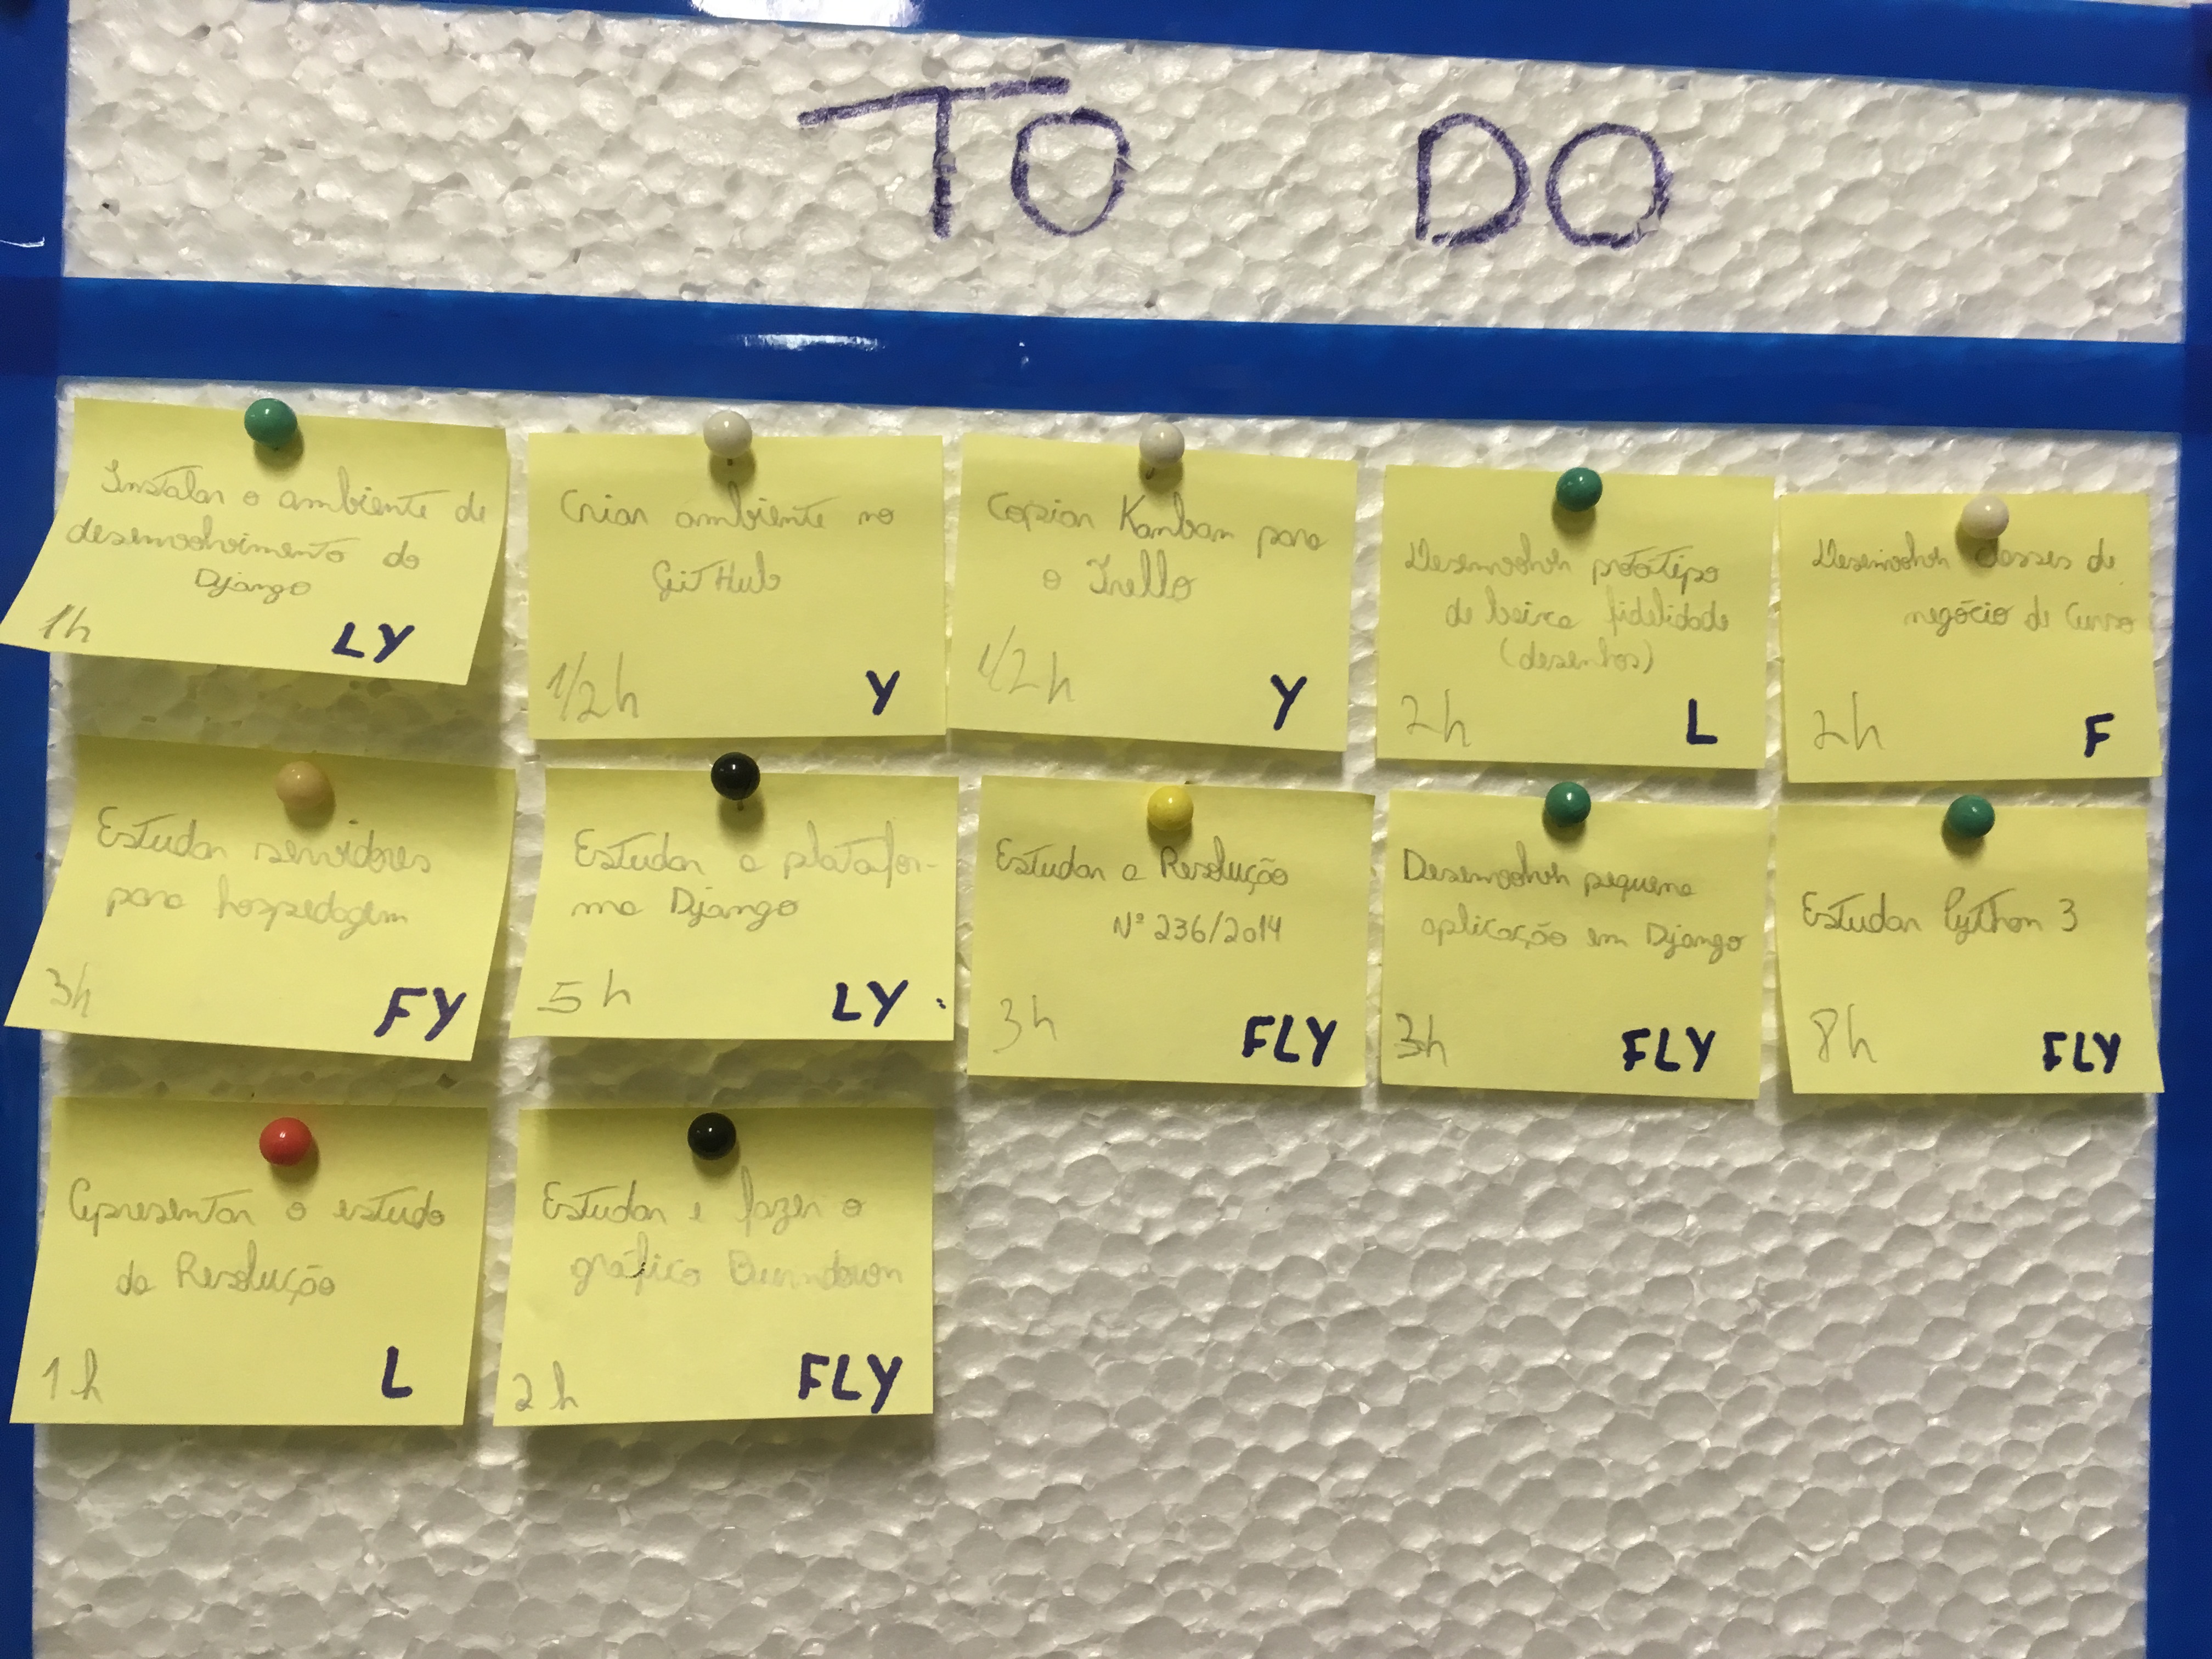 TO DO
Instalar o ambiente de
desenvolvimento do
Django
1h LY
Criar ambiente no
GitHub
1/2h Y
Copiar Kanban para
o Trello
1/2h Y
Desenvolver protótipo
de baixa fidelidade
(desenhos)
2h L
Desenvolver classes de
negócio de Curso
2h F
Estudar servidores
para hospedagem
3h FY
Estudar a platafor-
ma Django
5h LY
Estudar a Resolução
Nº 236/2014
3h FLY
Desenvolver pequena
aplicação em Django
3h FLY
Estudar Python 3
8h FLY
Apresentar o estudo
da Resolução
1h L
Estudar e fazer o
gráfico Burndown
2h FLY